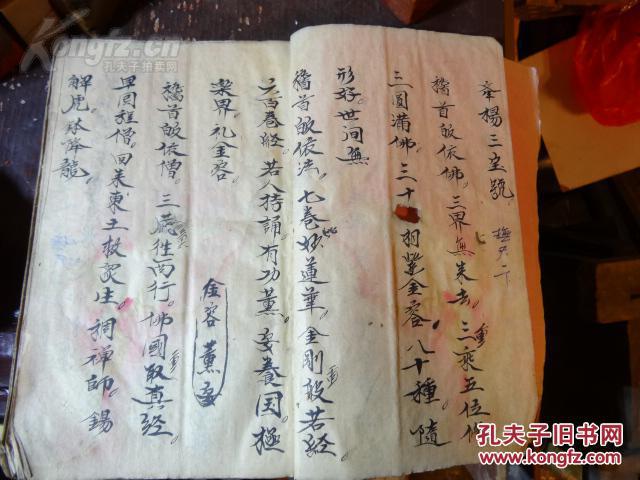 奉楊三宝號
稽首皈依佛。三界無来去。三乘五位
三圓滿佛。三十相紫金容。八十種。隨
形好。世间無
稽首皈依法。七卷妙蓮華。金剛般若经
六百卷経。若人持誦有功薰。安養国極
楽界。礼金容
金容 薰
稽首皈依僧。三藏徃西行。佛國取真经
早回程僧。回来東土救众生。稠禅師。錫
解虎。降龍。
Kongfz.com
孔夫子拍卖网
孔夫子旧书网
KONGFZ.COM